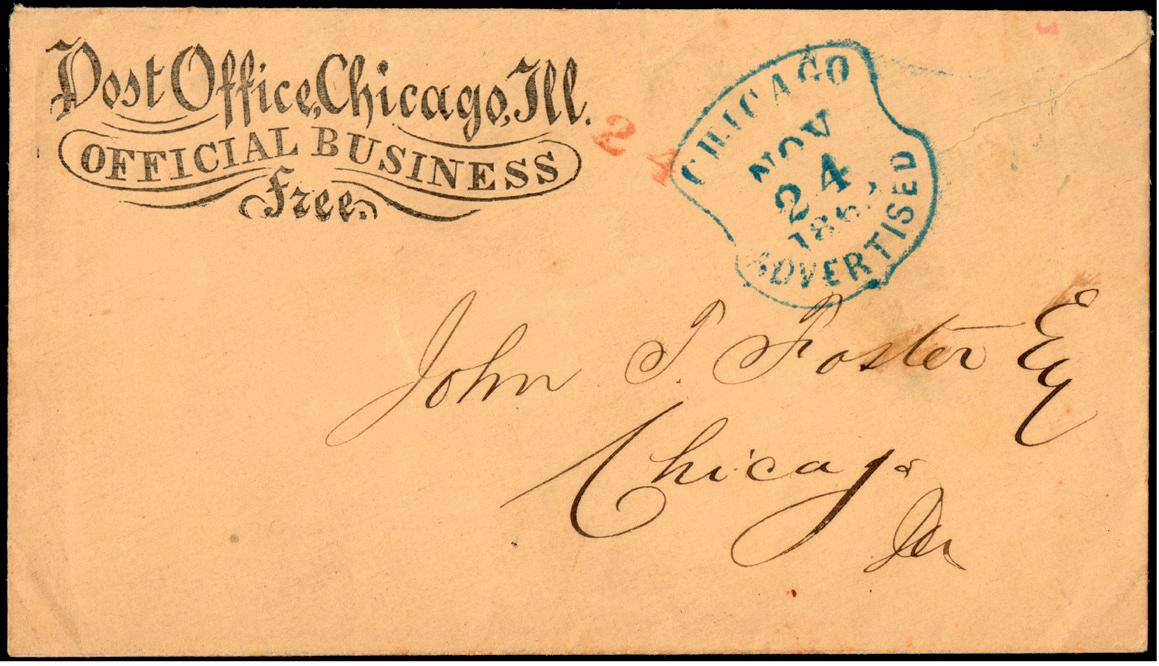 Post Office, Chicago, Ill.
OFFICIAL BUSINESS
Free.
24
CHICAGO
NOV
24
ADVERTISED
John T. Foster Esq
Chicago
Ills